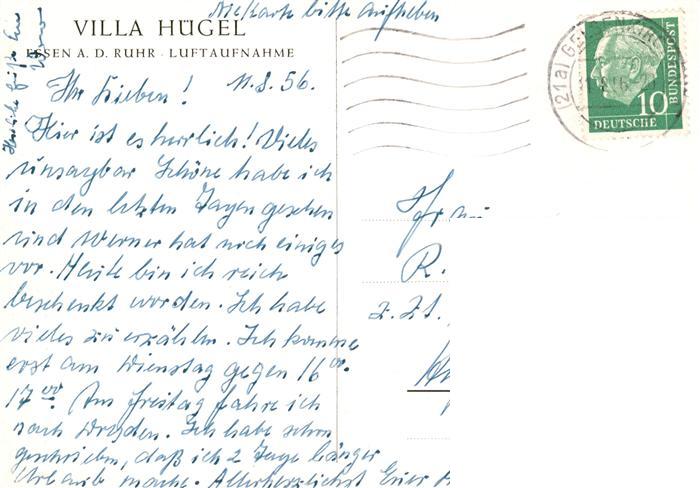 Die Karte bitte aufheben
VILLA HÜGEL
ESSEN A. D. RUHR · LUFTAUFNAHME
Herzliche Grüße Euer
Werner
Ihr Lieben! 11.8.56.
Hier ist es herrlich! Vieles
unsagbar Schöne habe ich
in den letzten Tagen gesehen
und Werner hat noch einiges
vor. Heute bin ich reich
beschenkt worden. Ich habe
vieles zu erzählen. Ich komme
erst am Dienstag gegen 16⁰⁰-
17⁰⁰. Am Freitag fahre ich
nach Dresden. Ich habe schon
geschrieben, daß ich 2 Tage länger
Urlaub mache. Allerherzlichst Euer
(21a) GELSENKIRCH
10
DEUTSCHE
BUNDESPOST
R.
z. Zt.